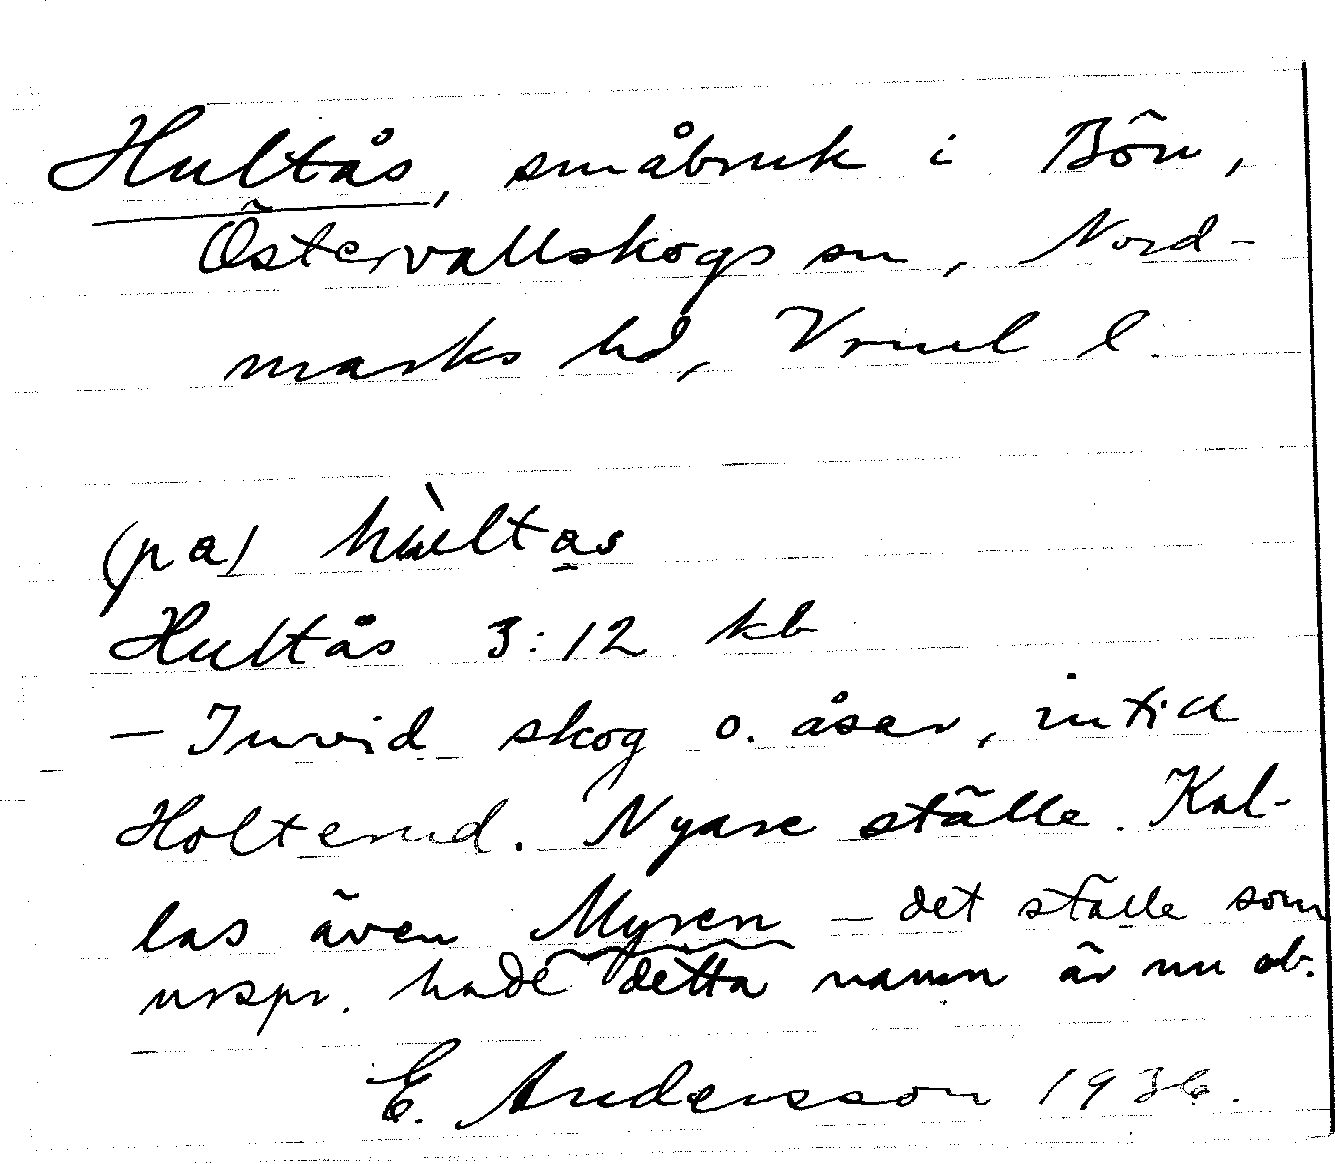 Hultås, småbruk i Bön,
Östervallskogs sn, Nord-
marks hd, Vrml l.
(pa) hùltas
Hultås 3:12 kb
– Invid skog o. åsar, intill
Holterud. Nyare ställe. Kal-
las även Myren – det ställe som
urspr. hade detta namn är nu ob.
E. Andersson 1936.